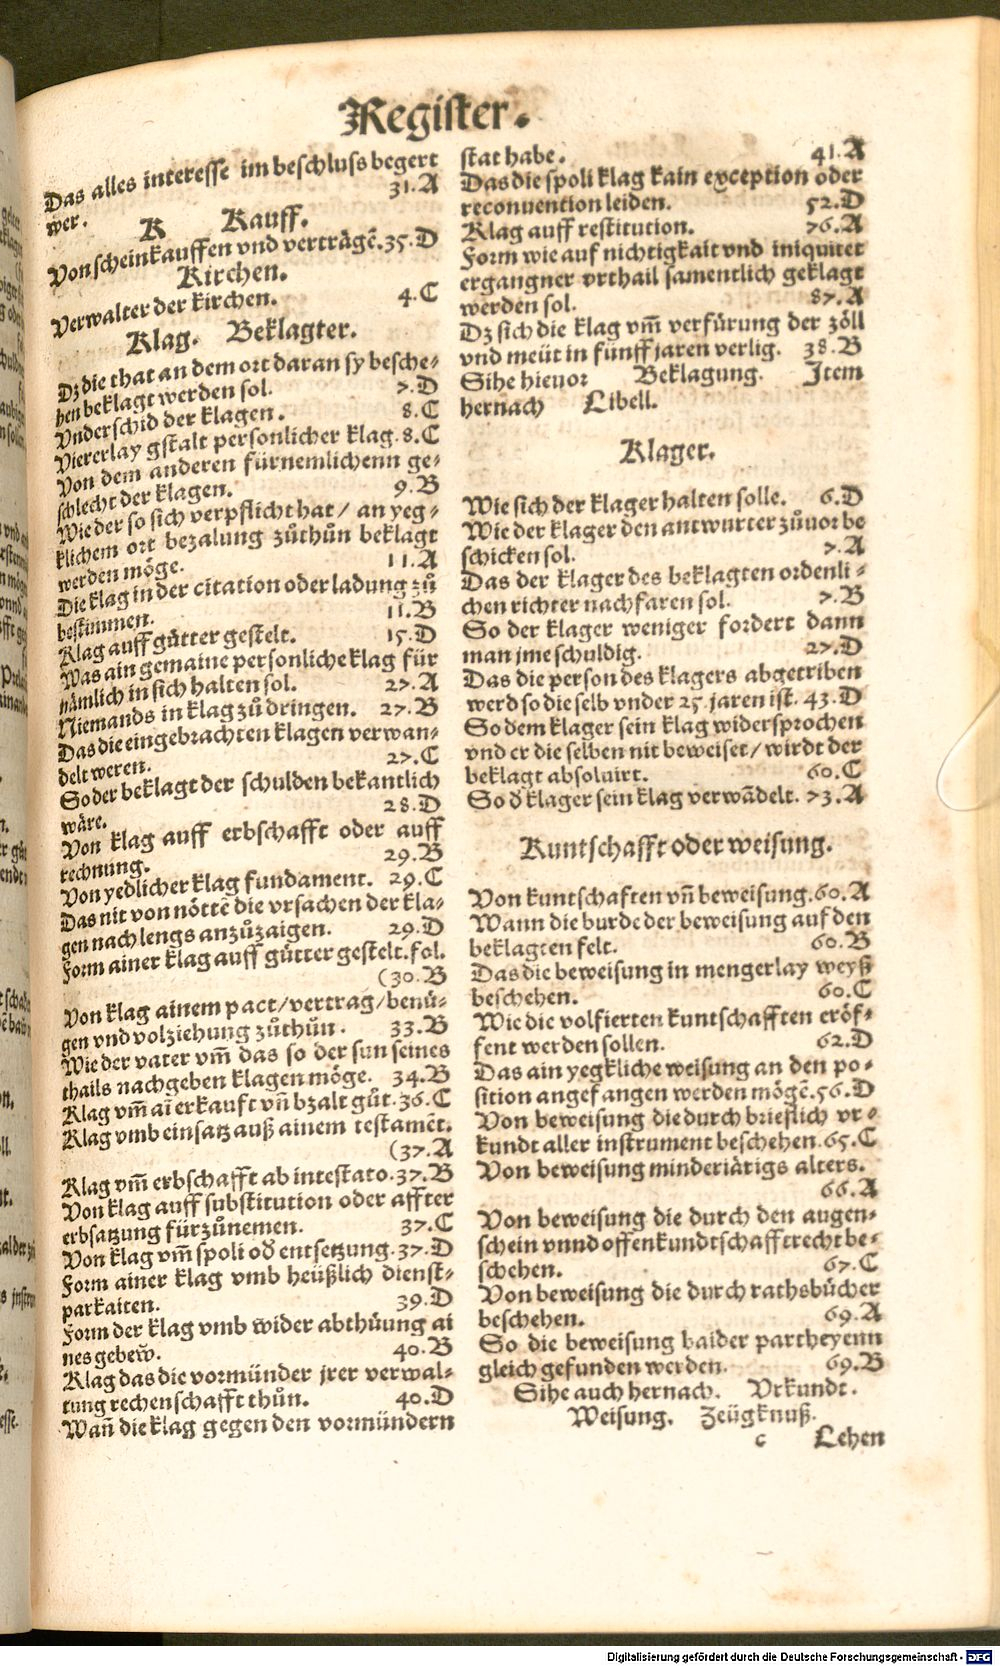 Register.
Das alles interesse im beschluss begert
wer. 31.A
K Kauff.
Von scheinkauffen vnd verträgẽ. 35.D
Kirchen.
Verwalter der kirchen. 4.C
Klag. Beklagter.
Dz die that an dem ort daran sy besche-
hen beklagt werden sol. 7.D
Vnderschid der klagen. 8.C
Viererlay gstalt personlicher klag. 8.C
Von dem anderen fürnemlichenn ge-
schlecht der klagen. 9.B
Wie der so sich verpflicht hat / an yeg-
klichem ort bezalung zůthůn beklagt
werden möge. 11.A
Die klag in der citation oder ladung zů
bestimmen. 11.B
Klag auff gütter gestelt. 15.D
Was ain gemaine personliche klag für
nämlich in sich halten sol. 27.A
Niemands in klag zů dringen. 27.B
Das die eingebrachten klagen verwan-
delt weren. 27.C
So der beklagt der schulden bekantlich
wäre. 28.D
Von klag auff erbschafft oder auff
rechnung. 29.B
Von yedlicher klag fundament. 29.C
Das nit von nöttẽ die vrsachen der kla-
gen nach lengs anzůzaigen. 29.D
Form ainer klag auff gütter gestelt. fol.
(30.B
Von klag ainem pact/vertrag/benü-
gen vnd volziehung zůthůn. 33.B
Wie der vater vm̃ das so der sun seines
thails nachgeben klagen möge. 34.B
Klag vm̃ aĩ erkauft vñ bzalt gůt. 36.C
Klag vmb einsatz auß ainem testamẽt.
(37.A
Klag vm̃ erbschafft ab intestato. 37.B
Von klag auff substitution oder affter
erbsatzung fürzůnemen. 37.C
Von klag vm̃ spoli od̃ entsetzung. 37.D
Form ainer klag vmb heüßlich dienst-
parkaiten. 39.D
Form der klag vmb wider abthüung ai
nes gebew̃. 40.B
Klag das die vormünder jrer verwal-
tung rechenschafft thůn. 40.D
Wañ die klag gegen den vormündern
stat habe. 41.A
Das die spoli klag kain exception oder
reconuention leiden. 52.D
Klag auff restitution. 76.A
Form wie auf nichtigkait vnd iniquitet
ergangner vrthail samentlich geklagt
werden sol. 87.A
Dz sich die klag vm̃ verfürung der zöll
vnd meüt in fünff jaren verlig. 38.B
Sihe hieuor Beklagung. Item
hernach Libell.
Klager.
Wie sich der klager halten solle. 6.D
Wie der klager den antwurter zůuor be
schicken sol. 7.A
Das der klager des beklagten ordenli-
chen richter nachfaren sol. 7.B
So der klager weniger fordert dann
man jme schuldig. 27.D
Das die person des klagers abgetriben
werd so die selb vnder 25. jaren ist. 43.D
So dem klager sein klag widersprochen
vnd er die selben nit beweiset / wirdt der
beklagt absoluirt. 60.C
So d̃ klager sein klag verwãdelt. 73.A
Kuntschafft oder weisung.
Von kuntschaften vñ beweisung. 60.A
Wann die burde der beweisung auf den
beklagten felt. 60.B
Das die beweisung in mengerlay weyß
beschehen. 60.C
Wie die volfierten kuntschafften eröf-
fent werden sollen. 62.D
Das ain yegkliche weisung an den po-
sition angefangen werden mögẽ. 56.D
Von beweisung die durch brieflich vr-
kundt aller instrument beschehen. 65.C
Von beweisung minderjärigs alters.
66.A
Von beweisung die durch den augen-
schein vnnd offenkundtschafft recht be-
schehen. 67.C
Von beweisung die durch rathsbücher
beschehen. 69.A
So die beweisung baider partheyenn
gleich gefunden werden. 69.B
Sihe auch hernach. Vrkundt.
Weisung. Zeügknuß.
c Lehen
Digitalisierung gefördert durch die Deutsche Forschungsgemeinschaft - DFG